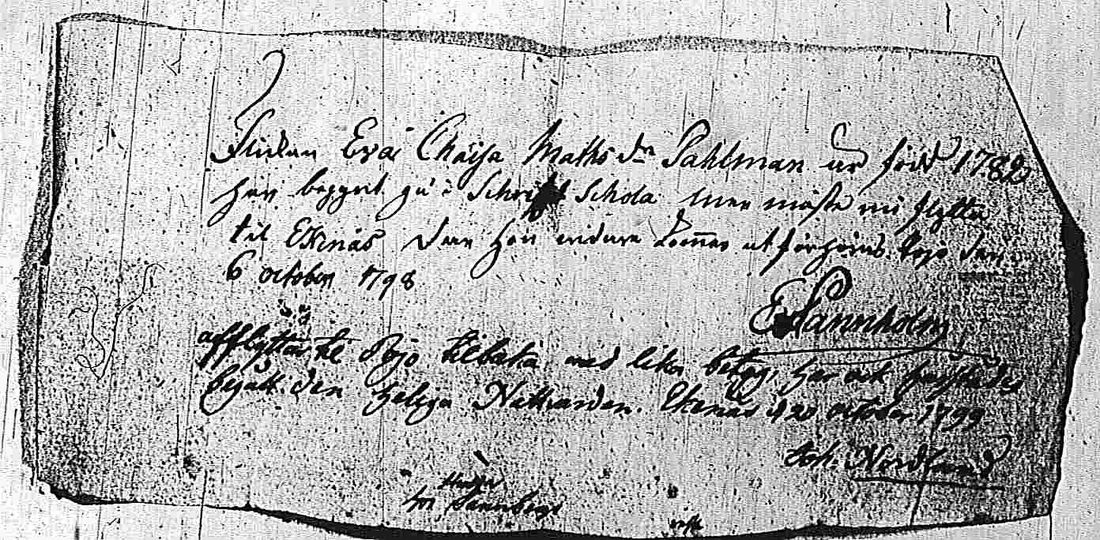 Pickan Eva Chaisa Maths dr Pahlman är född 1782
har begynt gå i Schrift Schola men måste nu flytta
til Ekenäs der hon vidare kommer at förhöras. Pojo den
6 october 1798
E Sannholm
afflyttar til Pojo tilbaka med lika betyg, har ock
besökt den heliga Nattvarden. Ekenäs d 20 october 1799
Joh. Nordlund